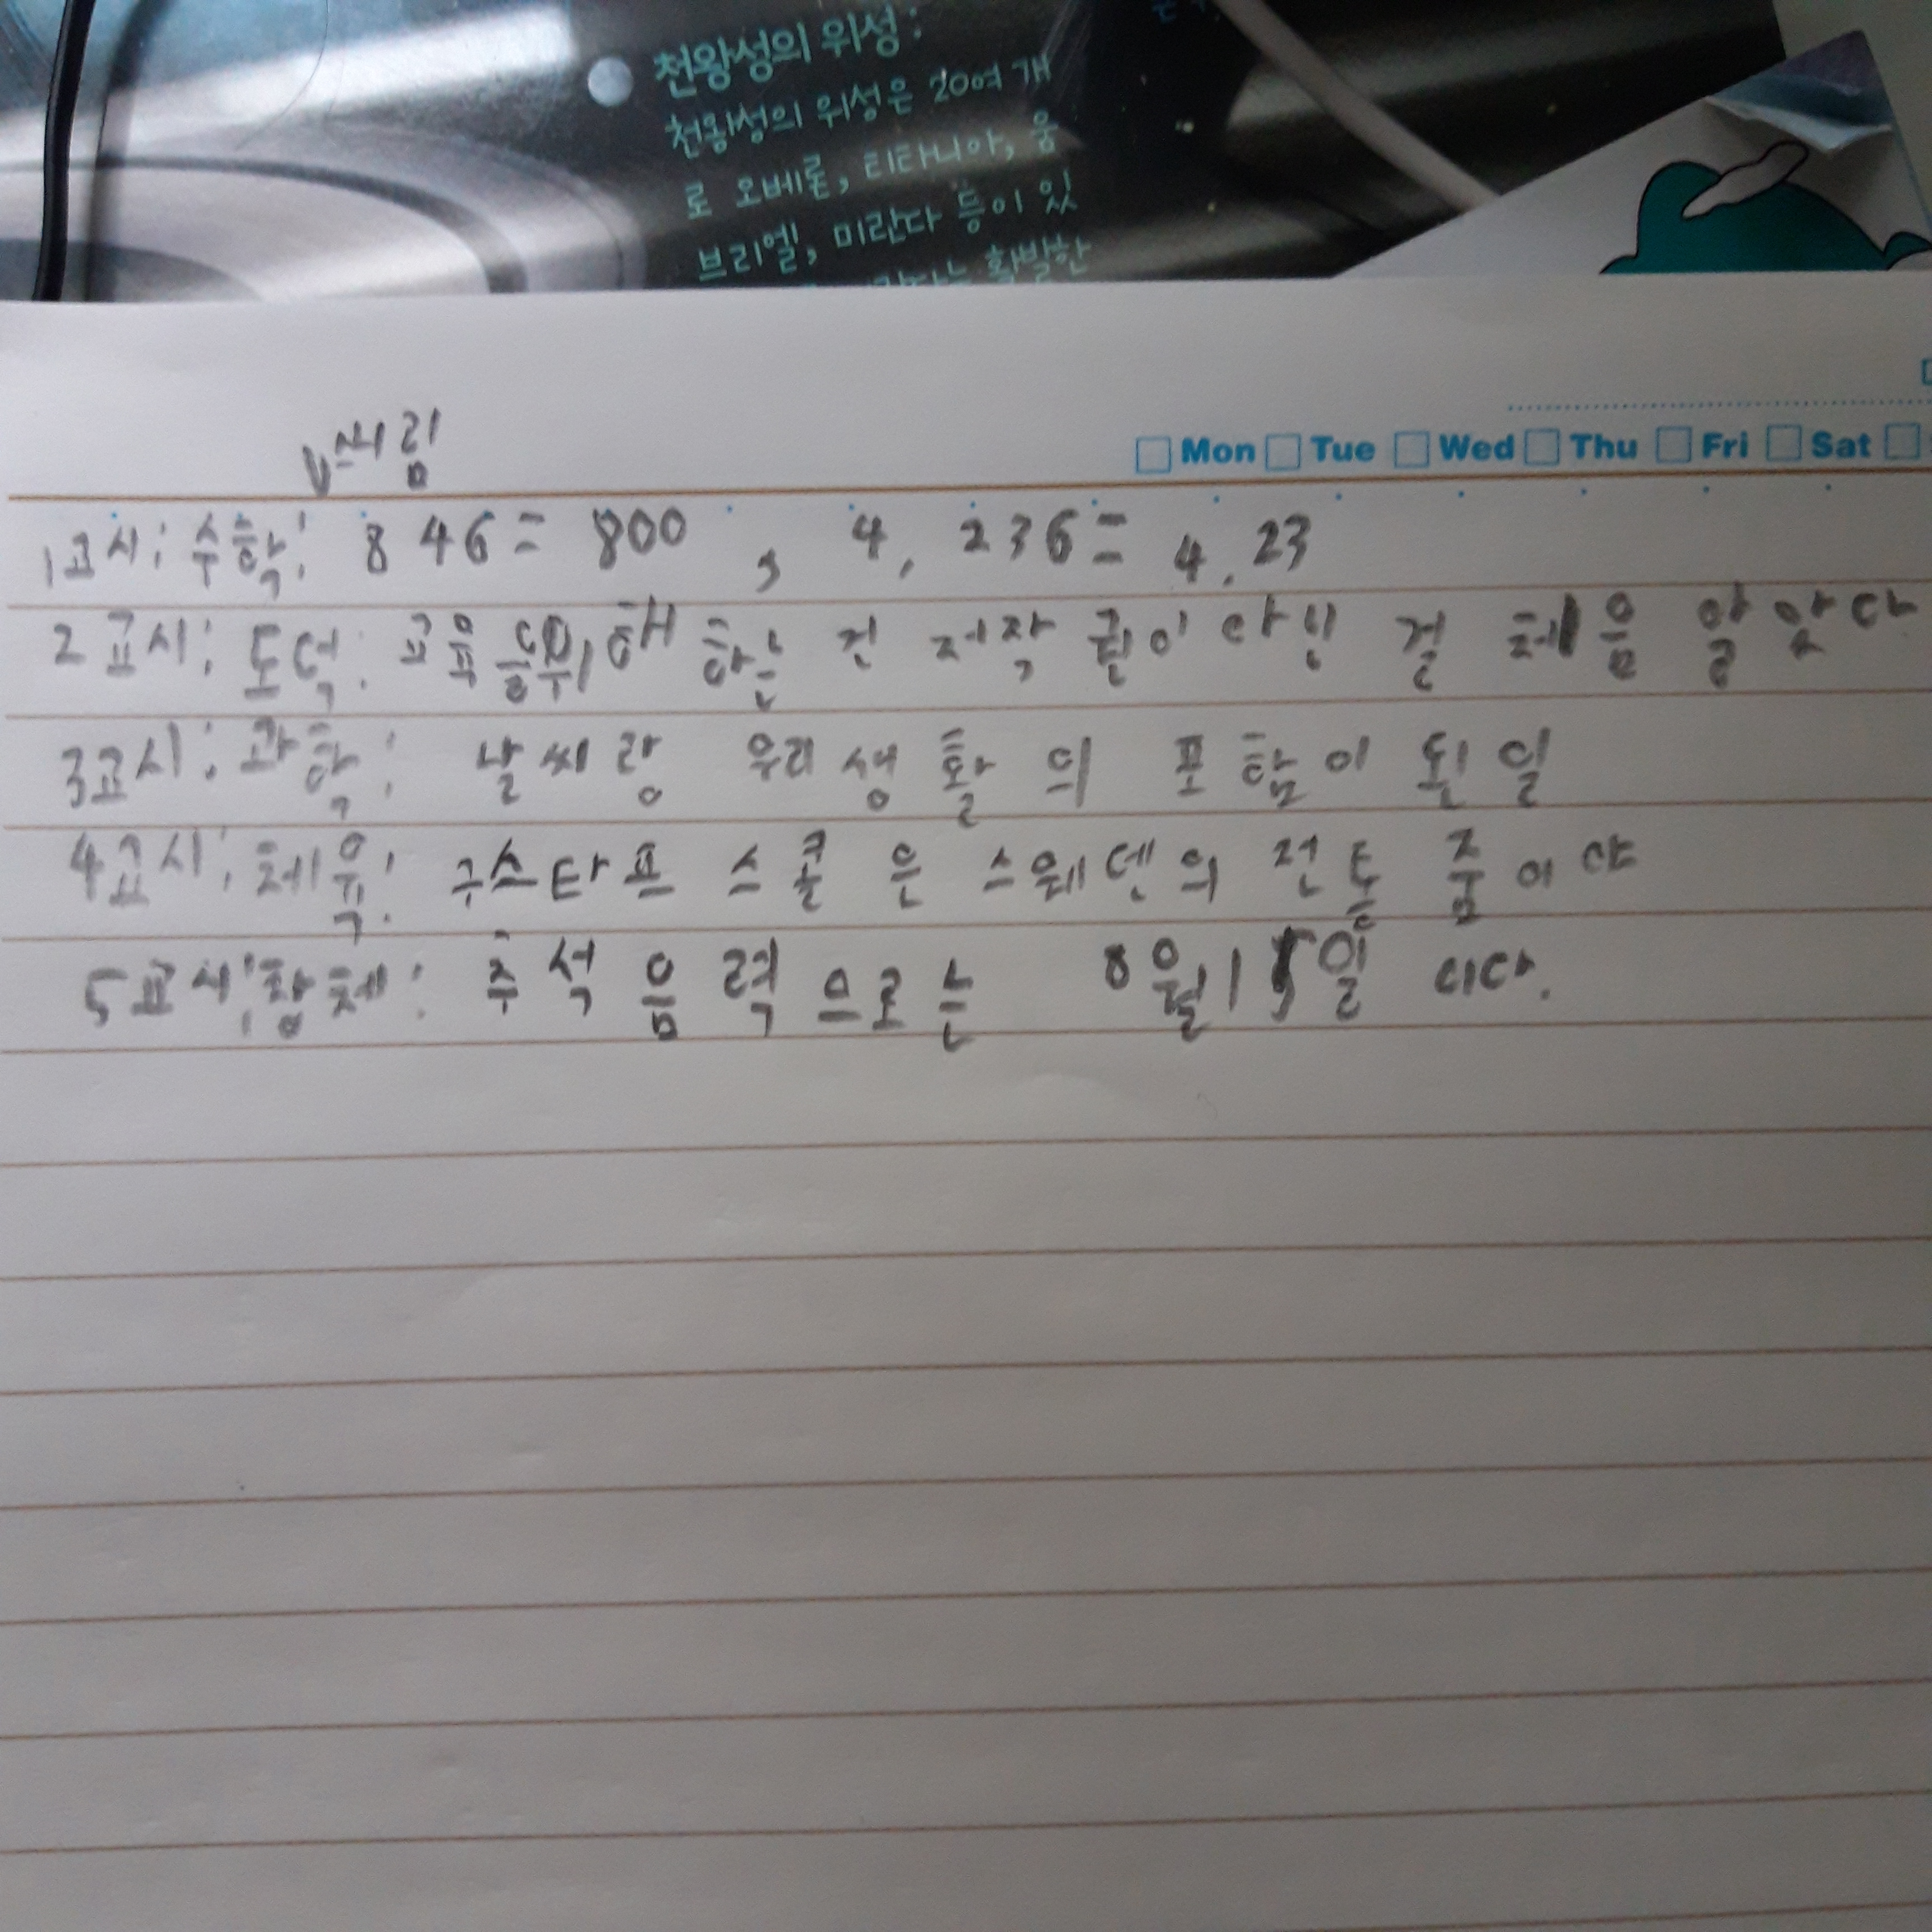 천왕성의 위성:
천왕성의 위성은 20여 개
로 오베론, 티타니아, 움
브리엘, 미란다 등이 있
활발한
Mon Tue Wed Thu Fri Sat
1교시: 수학: 846= 800 , 4, 236= 4. 23
2교시: 도덕: 교육 해 하는 건 저작 권이 아닌 걸 체음 알았다
3교시: 과학: 날씨랑 우리 생활의 포함이 된 일
4교시: 체육: 구스타프 스콜은 스웨덴의 전통 춤이야
5교시: 창체: 추석 음력으로는 8월 15일 이다.